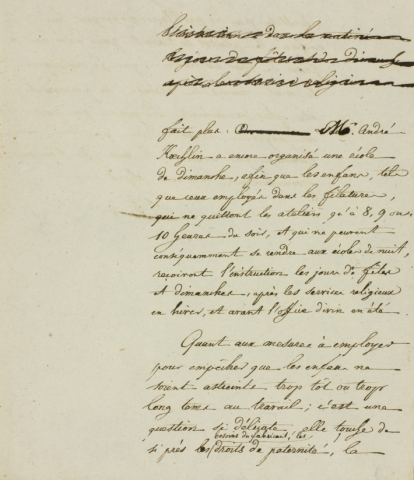 fait plus : M. André
Kœchlin a encore organisé une école
de dimanche, afin que les enfans, tels
que ceux employés dans les filatures,
qui ne quittent les ateliers qu'à 8, 9 ou
10 heures du soir, et qui ne peuvent
conséquemment se rendre aux écoles de nuit,
reçoivent l'instruction les jours de fêtes
et dimanches, après les services religieux
en hiver, et avant l'office divin en été.
Quant aux mesures à employer
pour empêcher que les enfans ne
soient astreints trop tôt ou trop
long tems au travail ; c'est une
question si délicate, elle touche de
besoins du fabricant, les
si près les droits de paternité, la